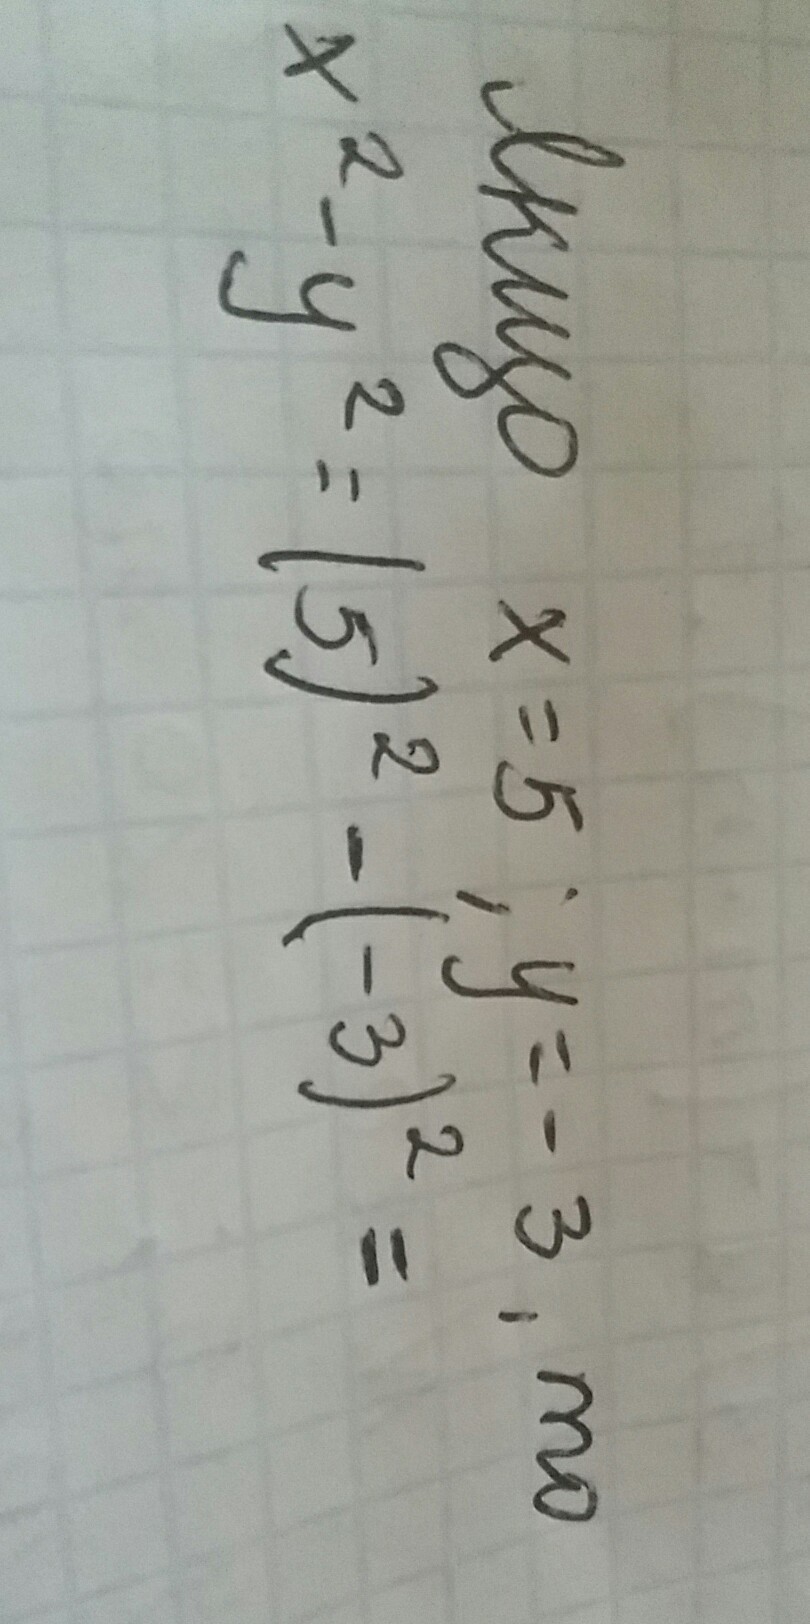 Якщо x = 5 ; y = - 3 , то
x² - y² = (5)² - (-3)² =